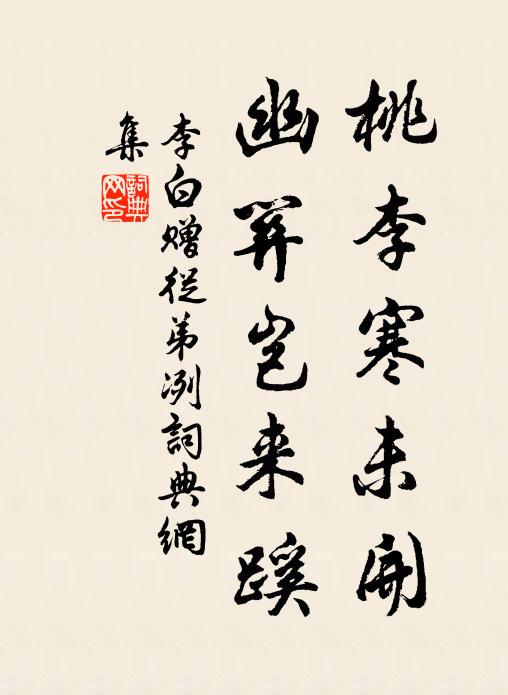 桃李寒未開
幽關豈来蹊
李白贈從弟冽詞典網
集
詞典
网印